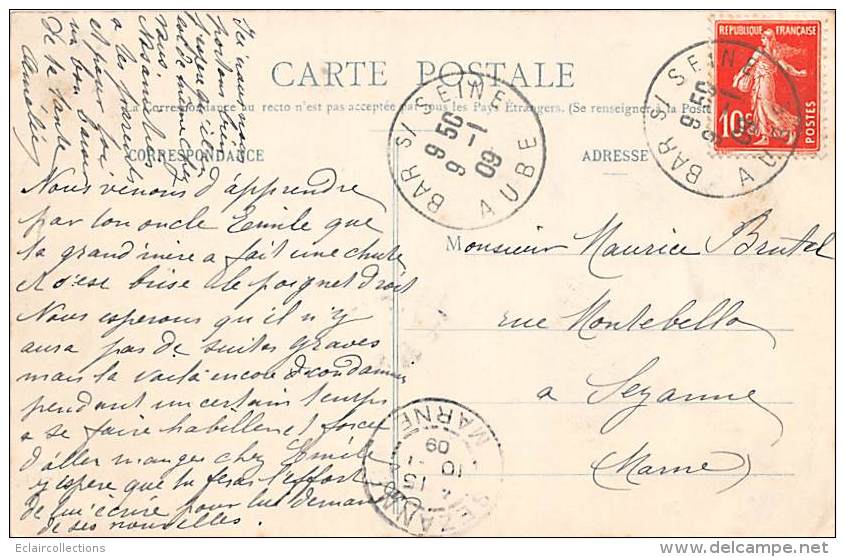 CARTE POSTALE
La Correspondance au recto n'est pas acceptée par tous les Pays Étrangers. (Se renseigner à la Poste
CORRESPONDANCE
ADRESSE
REPUBLIQUE FRANÇAISE
10c
POSTES
BAR S/ SEINE
9 50
9 -1
09
AUBE
BAR S/ SEINE
9 50
9 -1
09
AUBE
Nous venons d'apprendre
par ton oncle Emile que
ta grand'mère a fait une chute
et s'est brisé le poignet droit
Nous esperons qu'il n'y
aura pas de suites graves
mais la voilà encore condamnée
pendant un certain temps
a se faire habiller et forcée
d'aller manger chez Emile
J'espere que tu feras l'effort
de lui écrire pour lui demander
de ses nouvelles.
portons bien
j'espère qu'il en
est de même chez
vous.
Nos amabilités
a tes parents
et pour toi
un bon baiser
de ta tante
Amélie
Monsieur Maurice Brutel
rue Montebello
a Sezanne
(Marne)
SEZANNE
4 15
10 -1
09
MARNE
Eclaircollections
delcampe.net